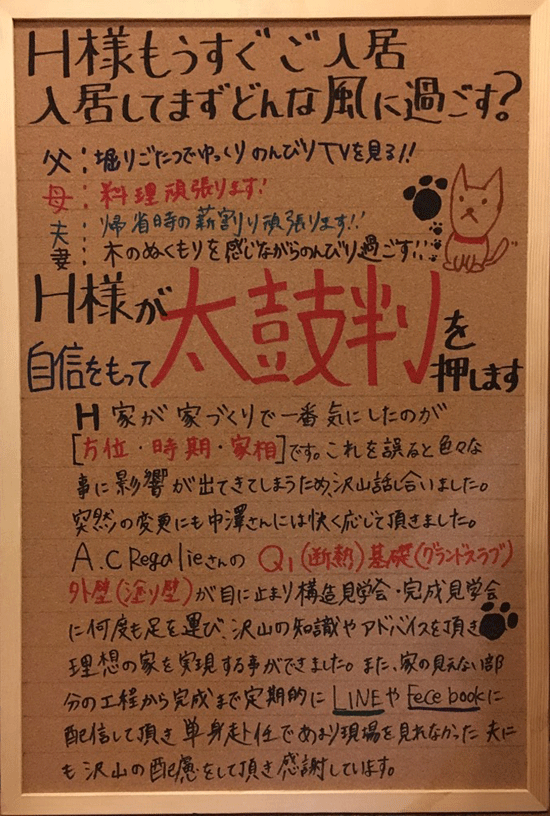 H様もうすぐご入居
入居してまずどんな風に過ごす?
父:堀りごたつでゆっくりのんびりTVを見る!!
母:料理頑張ります!
夫:帰省時の薪割り頑張ります!!
妻:木のぬくもりを感じながらのんびり過ごす!!
H様が太鼓判を
自信をもって押します
H家が家づくりで一番気にしたのが
[方位・時期・家相]です。これを誤ると色々な
事に影響が出てきてしまうため、沢山話し合いました。
突然の変更にも中澤さんには快く応じて頂きました。
A.C Regalieさんの Q1(断熱)基礎(グランドスラブ)
外壁(塗り壁)が目に止まり構造見学会・完成見学会
に何度も足を運び、沢山の知識やアドバイスを頂き
理想の家を実現する事ができました。また、家の見えない部
分の工程から完成まで定期的にLINEやFece bookに
配信して頂き単身赴任であまり現場を見れなかった夫に
も沢山の配慮をして頂き感謝しています。